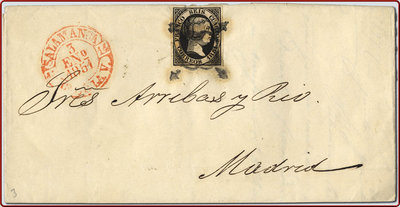 SALAMANCA
3
ENº
1851
FRANCO SEIS CUOS
Sres Arribas y Rio.
Madrid
3